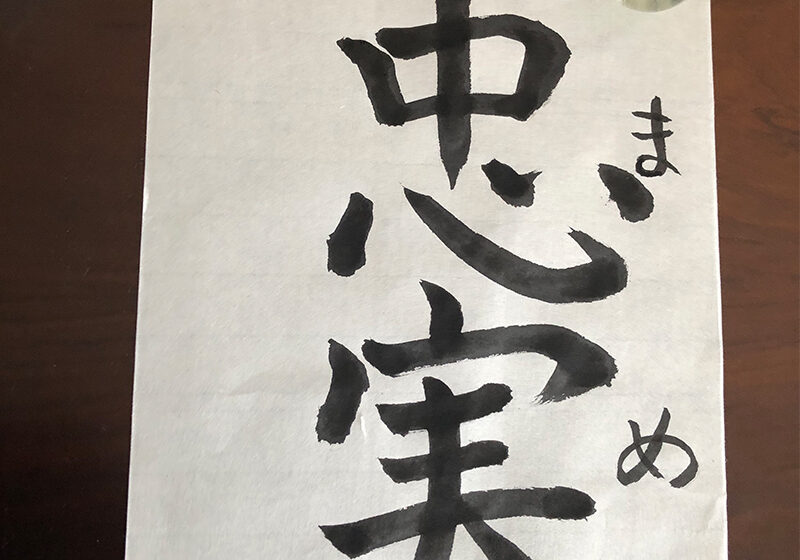 忠実
まめ